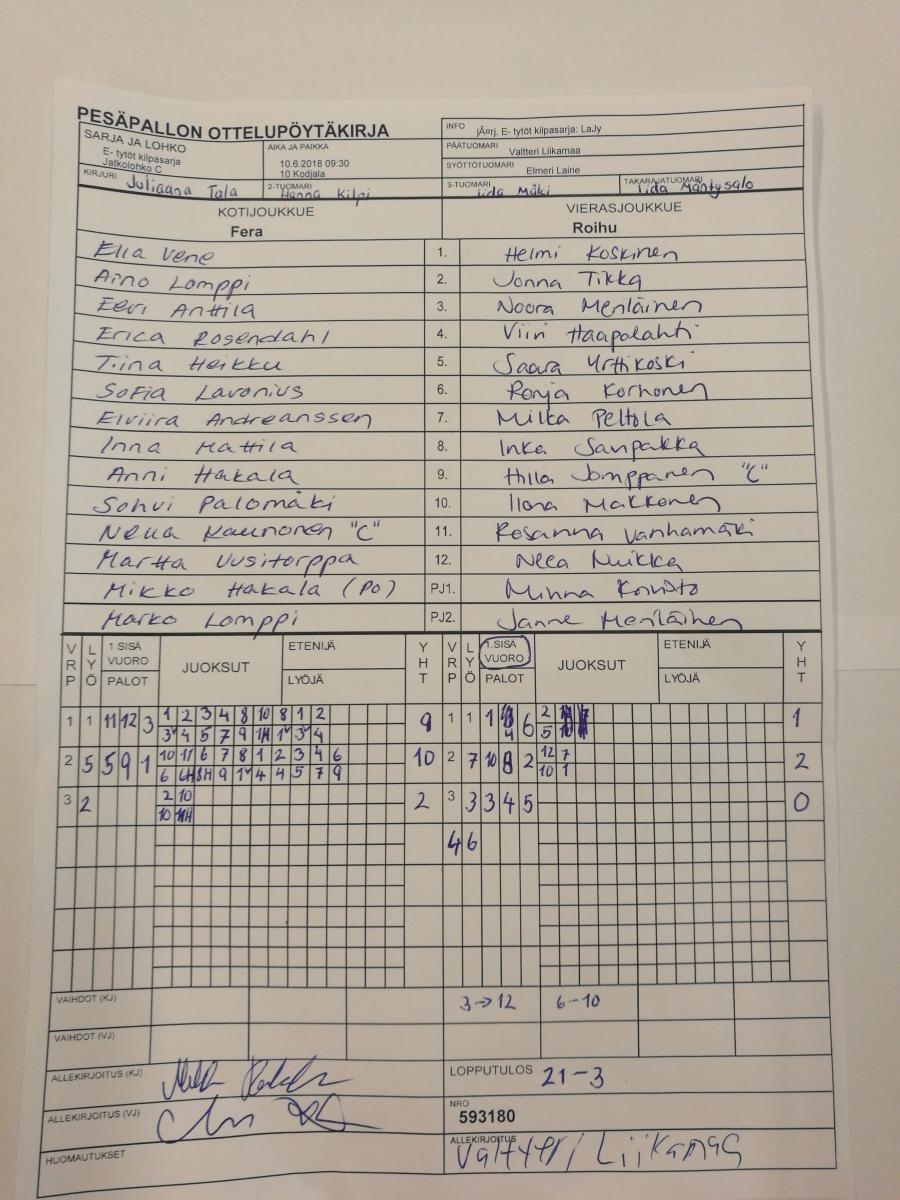 PESÄPALLON OTTELUPÖYTÄKIRJA
SARJA JA LOHKO
E- tytöt kilpasarja
Jatkolohko C
AIKA JA PAIKKA
10.6.2018 09:30
10 Kodjala
INFO jÃ¤rj. E- tytöt kilpasarja: LaJy
PÄÄTUOMARI Valtteri Liikamaa
SYÖTTÖTUOMARI Elmeri Laine
KIRJURI Juliaana Tala
2-TUOMARI Hanna Kilpi
3-TUOMARI Iida Mäki
TAKARAJATUOMARI Iida Mäntysalo
KOTIJOUKKUE VIERASJOUKKUE
Fera Roihu
Ella Vene 1. Helmi Koskinen
Aino Lomppi 2. Jonna Tikka
Eevi Anttila 3. Noora Meriläinen
Erica Rosendahl 4. Viiri Haapalahti
Tiina Heikku 5. Saara Yrttikoski
Sofia Lavonius 6. Ronja Korhonen
Elviira Andreanssen 7. Milka Peltola
Inna Mattila 8. Inka Sanpakka
Anni Hakala 9. Hilla Jomppanen "C"
Sohvi Palomäki 10. Ilona Makkonen
Neua Kaunonen "C" 11. Rosanna Vanhamäki
Martta Uusitorppa 12. Neea Nuikka
Mikko Hakala (PO) PJ1. Minna Koivisto
Marko Lomppi PJ2. Janne Meriläinen
VRP LYÖ 1.SISÄ VUORO PALOT JUOKSUT ETENIJÄ LYÖJÄ YHT VRP LYÖ 1.SISÄ VUORO PALOT JUOKSUT ETENIJÄ LYÖJÄ YHT
1 1 11 12 3 1 2 3 4 8 10 8 1 2 9 1 1 1 6 2 1
4 5 7 9 4 4 5
2 5 5 9 1 10 11 6 7 8 1 2 3 4 6 10 2 7 10 8 2 12 7 2
6 9 4 4 5 7 9 10 1
3 2 2 10 2 3 3 3 4 5 0
10
4 6
VAIHDOT (KJ) 3→12 6-10
VAIHDOT (VJ)
ALLEKIRJOITUS (KJ)
LOPPUTULOS 21-3
ALLEKIRJOITUS (VJ)
NRO
593180
HUOMAUTUKSET
ALLEKIRJOITUS Valtteri Liikamaa